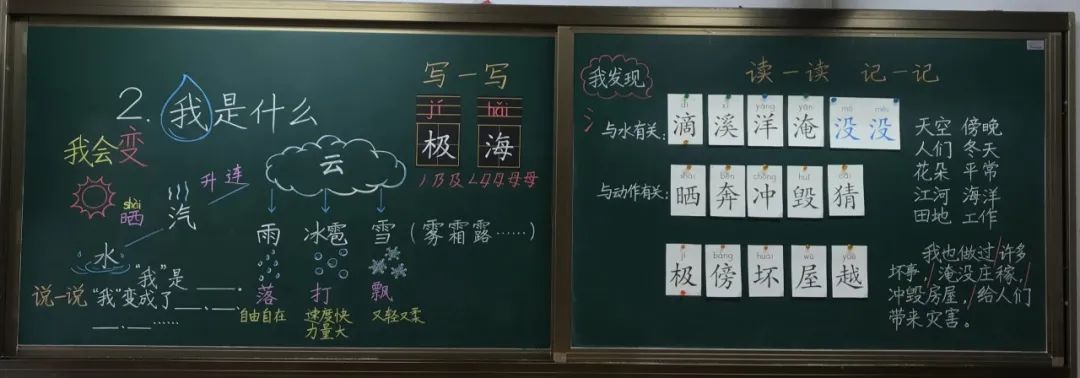 2.我是什么
我会变
shài
晒
升 连
汽
水
云
雨 冰雹 雪 (雾霜露……)
落 打 飘
自由自在 速度快 又轻又柔
力量大
说一说
“我”是____、____。
“我”变成了____、____、
____、____……
写一写
jí hǎi
极 海
丿乃及 𠃋母母母母
我发现
读一读 记一记
氵
与水有关:
dī xī yáng yān mò méi
滴 溪 洋 淹 没 没
与动作有关:
shài bēn chōng huǐ cāi
晒 奔 冲 毁 猜
jí bàng huài wū yuè
极 傍 坏 屋 越
天空 傍晚
人们 冬天
花朵 平常
江河 海洋
田地 工作
我也做过/许多
坏事,/淹没庄稼,/
冲毁房屋,/给人们
带来灾害。